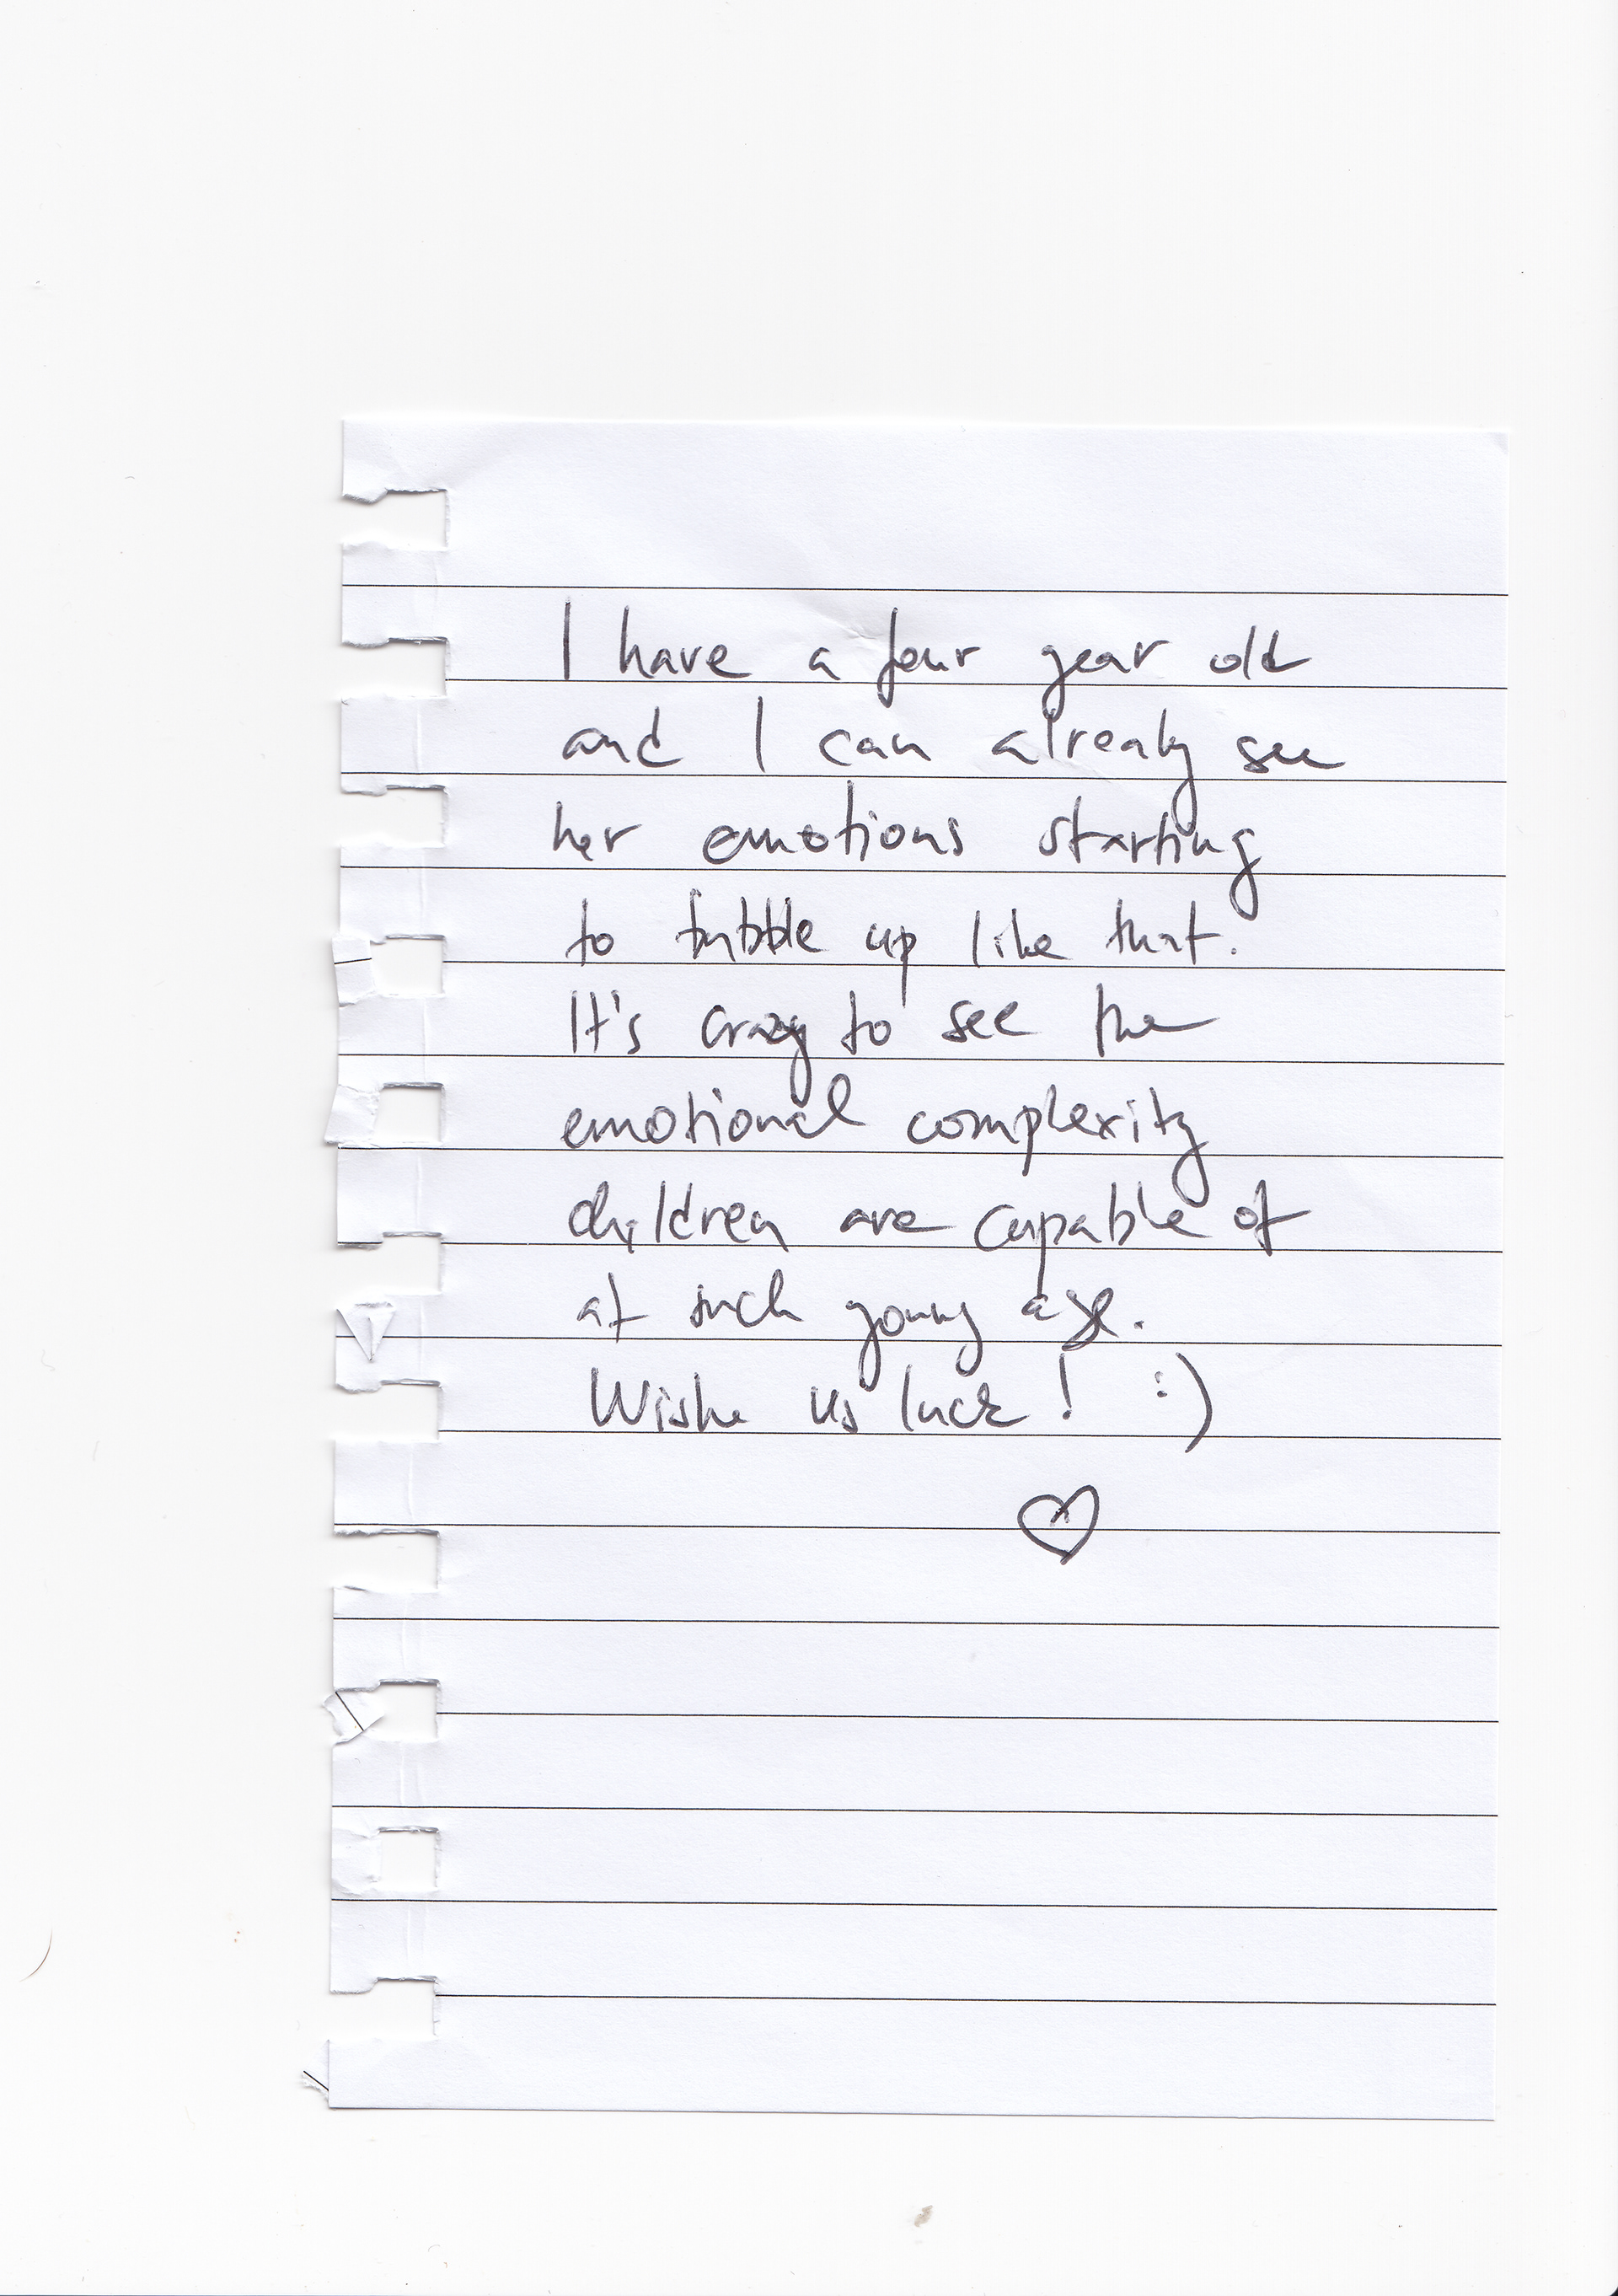 I have a four year old
and I can already see
her emotions starting
to bubble up like that.
It's crazy to see the
emotional complexity
children are capable of
at such young age.
Wishe us luck! :)
♡